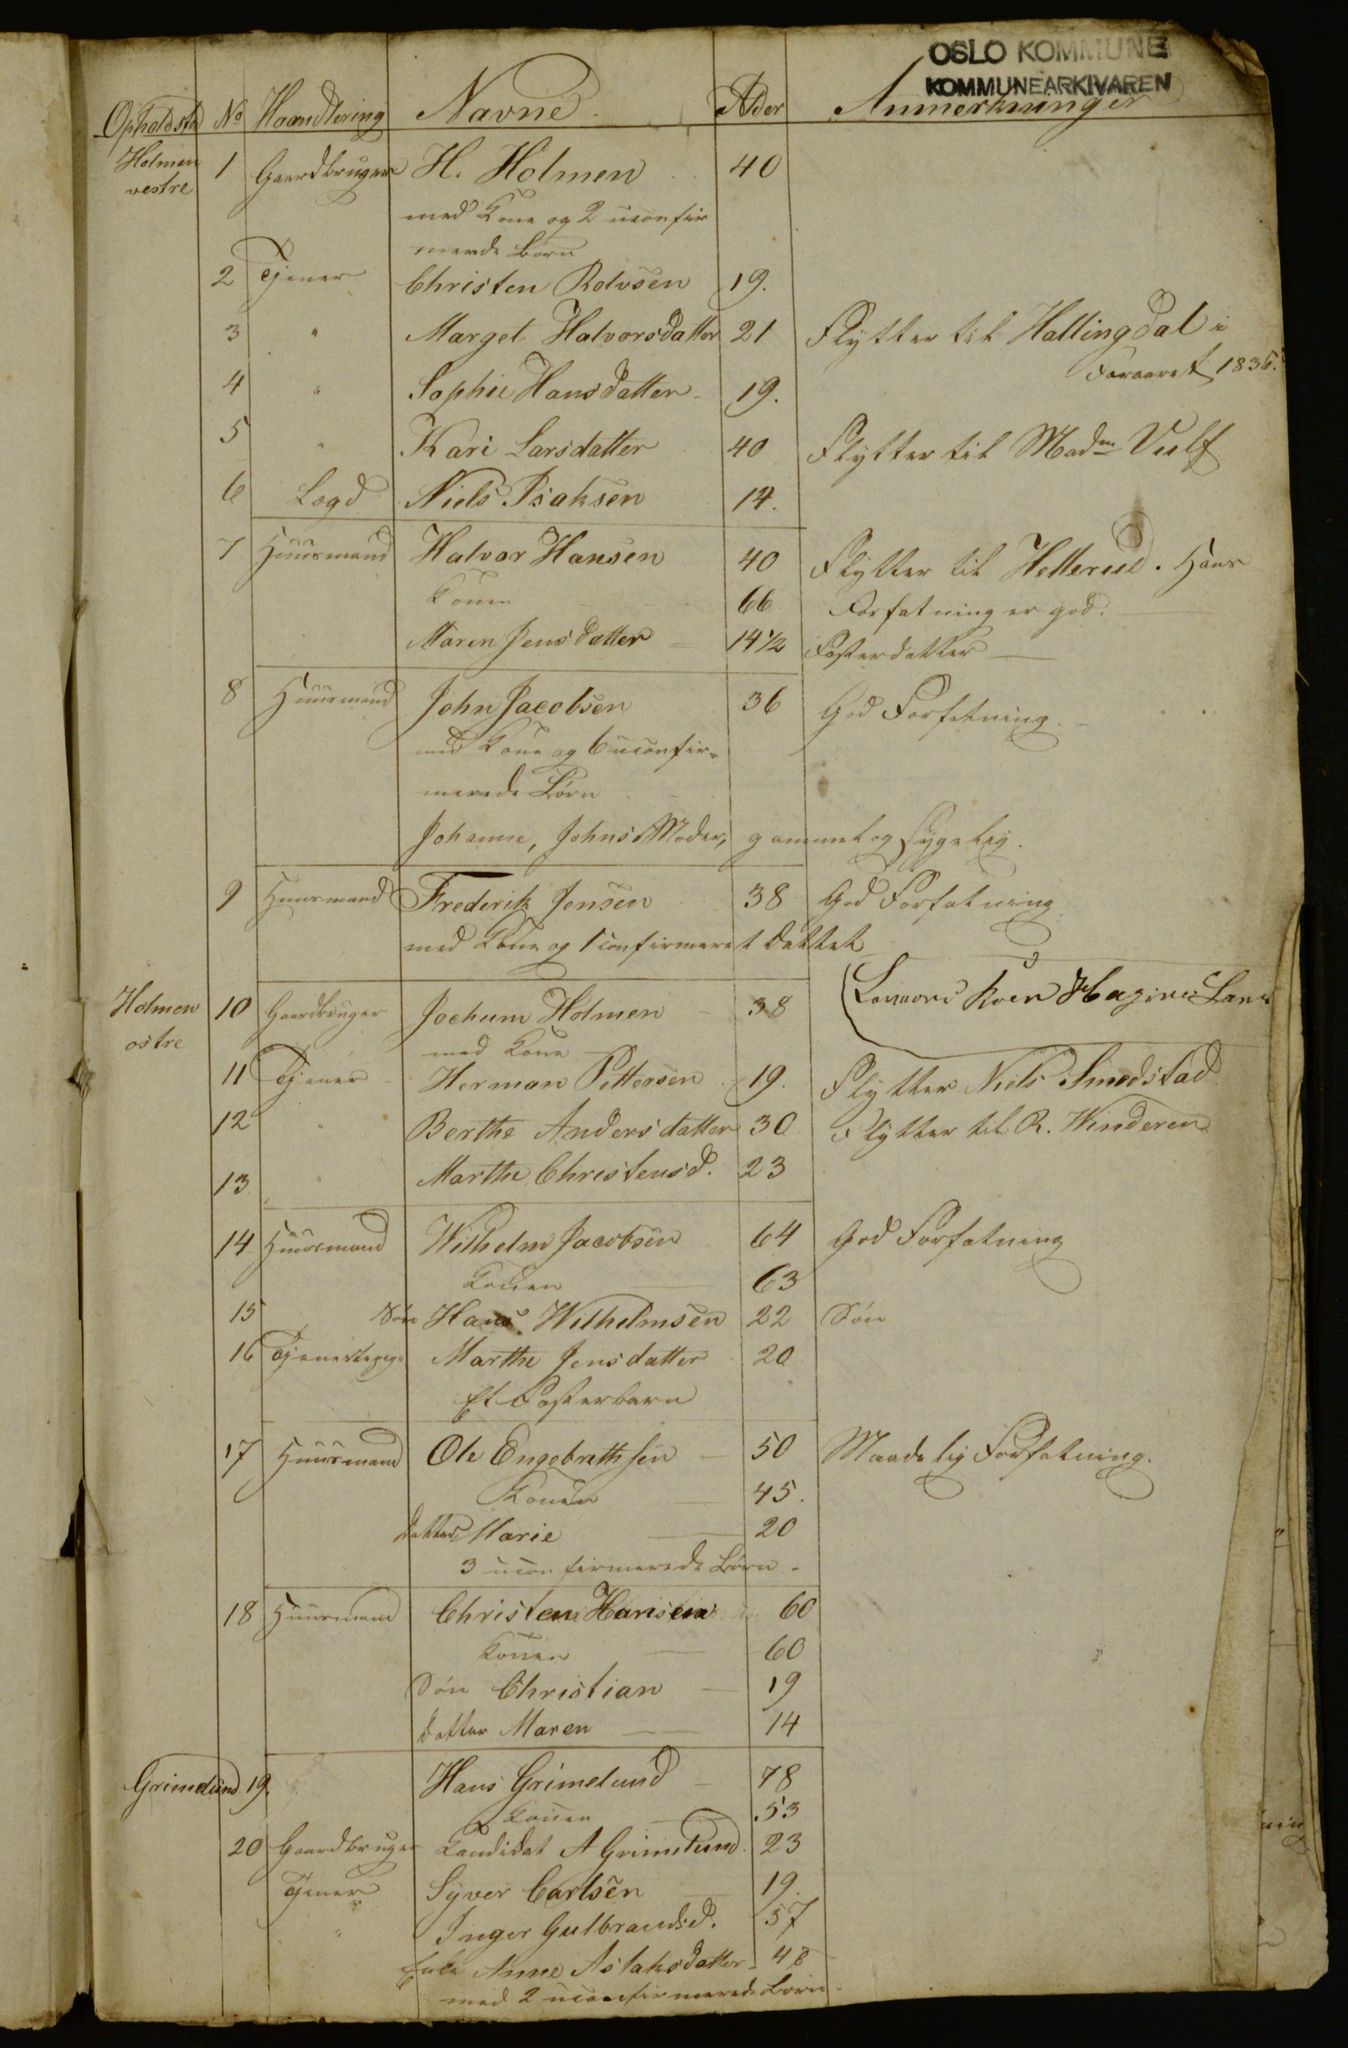 OSLO KOMMUNE
KOMMUNEARKIVAREN
Opholdsted No Haandtering Navne Alder Anmerkninger
Holmen vestre 1 Gaardbruger H. Holmen 40
med Kone og 2 uconfir
merede Børn
2 Tjener Christen Rolvsen 19.
3 " Marget Halvorsdatter 21 Flytter til Hallingdal i
Foraaret 1836.
4 " Sophie Hansdatter 19.
5 " Kari Larsdatter 40 Flytter til Madm Vulf
6 Logd Niels Isaksen 14.
7 Huusmand Halvor Hansen 40 Flytter til Hellerud. Hans
Konen 66 Forfatning er god.
Maren Jensdatter 14 1/2 Fosterdatter
8 Huusmand John Jacobsen 36 God Forfatning.
med Kone og 6 uconfir-
merede Børn
Johanne, Johns Moder, gammel og sygelig.
9 Huusmand Frederik Jensen 38 God Forfatning
med Kone og 1 confirmeret Datter
Holmen ostre 10 Gaardbruger Jochum Holmen 38
med Kone
11 Tjener Herman Pettersen 19. Flytter Niels Smedstad
12 " Berthe Andersdatter 30 Flytter til R. Winderen
13 " Marthe Christensd. 23
14 Huusmand Wilhelm Jacobsen 64 God Forfatning
Konen 63
15 Søn Hans Wilhelmsen 22 Søn
16 Tjenestepige Marthe Jensdatter 20
Et Fosterbarn
17 Huusmand Ole Engebrethsen 50 Maadelig Forfatning.
Konen 45.
datter Marie 20
3 uconfirmerede Børn
18 Huusmand Christen Hansen 60
Konen 60
Søn Christian 19
datter Maren 14
Grimelund 19. Hans Grimelund 78
Konen 53
20 Gaardbruger Candidat A Grimelund 23
Tjener Syver Carlsen 19.
" Inger Gulbrandsd. 57
Enke Anne Aslaksdatter 48
med 2 uconfirmerede Børn